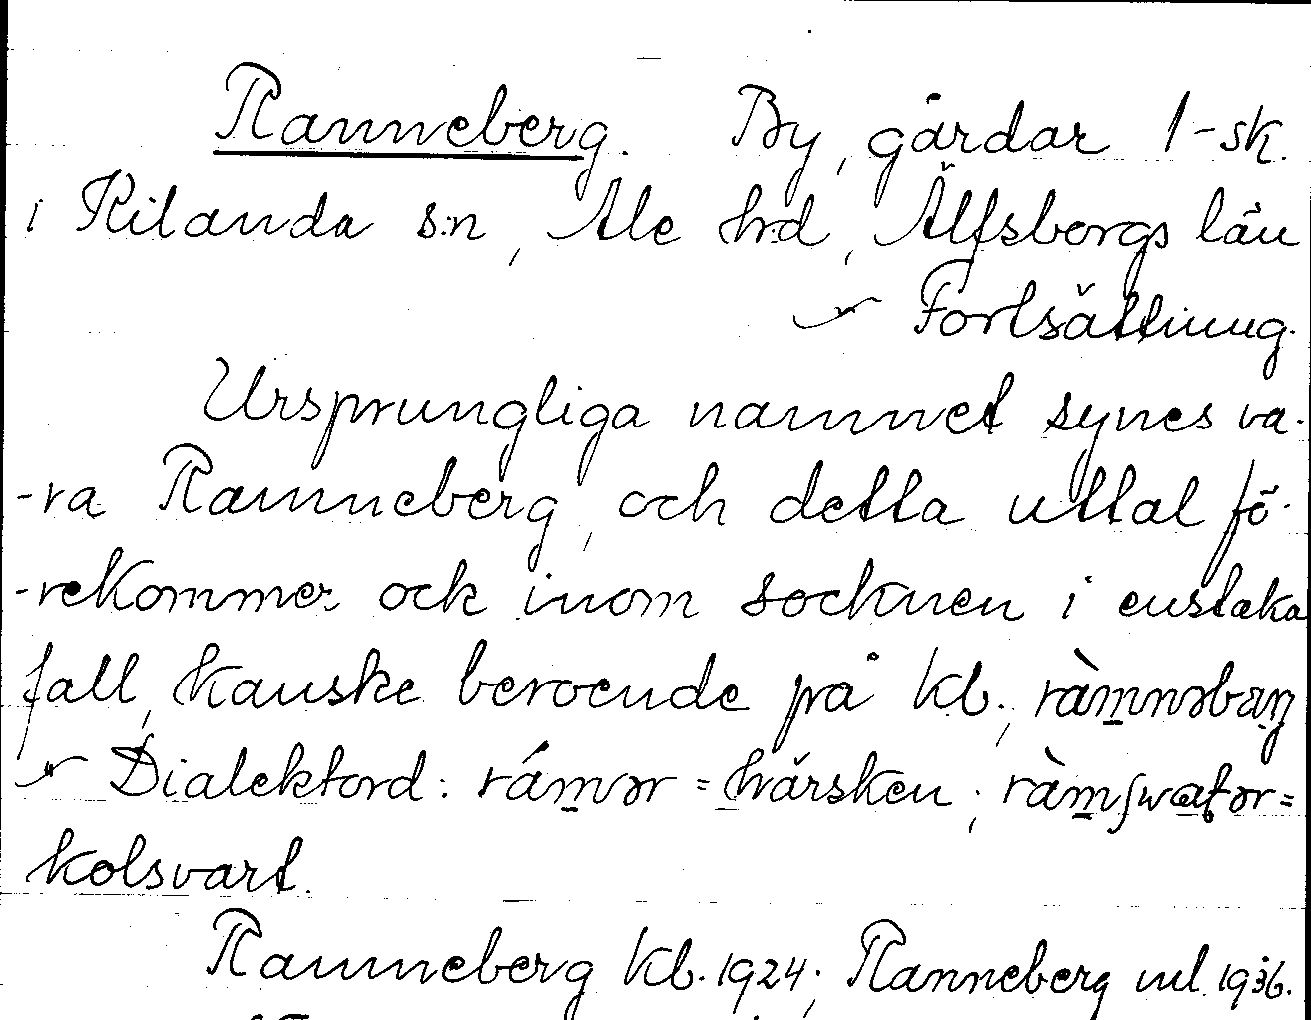 Ranneberg. By, gårdar 1-sk.
i Kilanda s:n, Ale hrd, Älfsborgs län
Fortsättning.
Ursprungliga namnet synes va-
-ra Ranneberg, och detta uttal fö-
-rekommer ock inom socknen i enstaka
fall, kanske beroende på kb.,
Dialektord: = härsken; =
kolsvart.
Ranneberg kb. 1924; Ranneberg ml 1936.